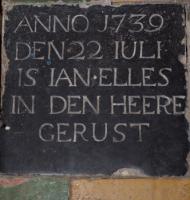 ANNO 1739
DEN·22 IULI
IS IAN·ELLES
IN DEN HEERE
GERUST